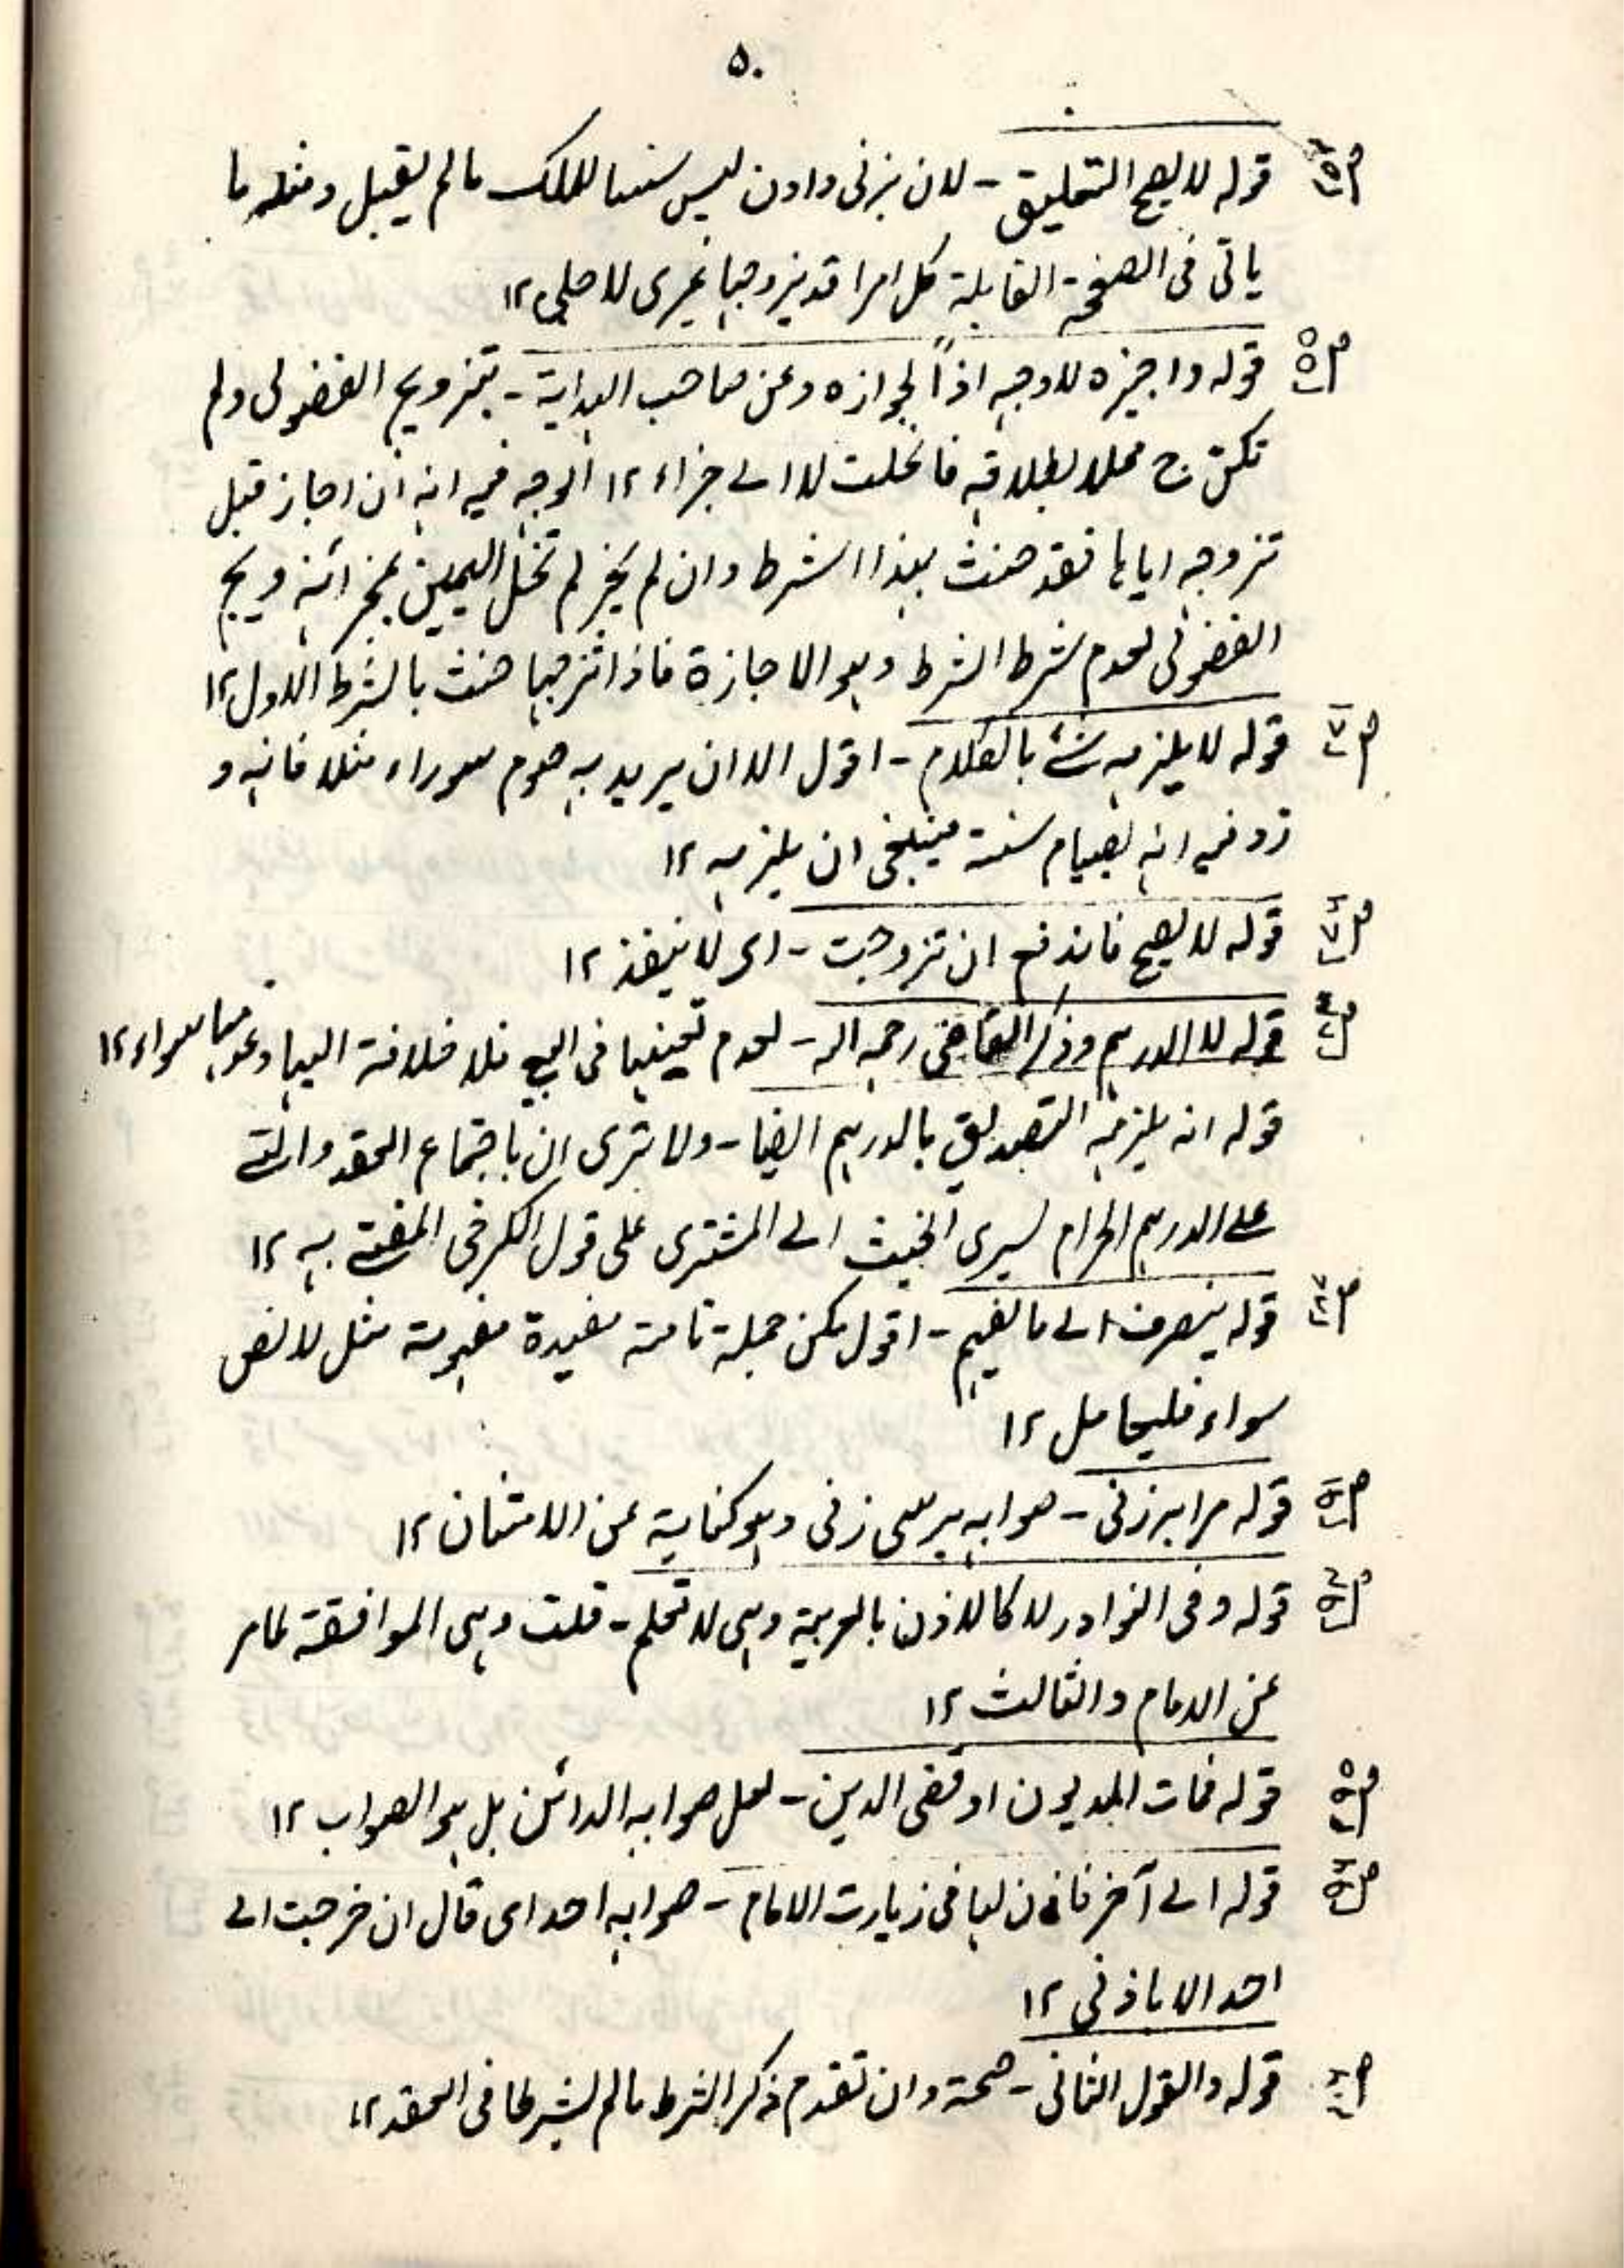 ۵۰
قوله لا يصح التعليق - لان بزنی دادن ليس سببا للملك مالم يقبل ومثله ما
ياتى فى الصفحة القابلة كل امراة يزوجها غيرى لاجلى ۱۲
قوله واجيزه لا وجه اذاً لجوازه وعن صاحب الهداية - بتزويج الفضولى ولم
تكن ح محلا لطلاقه فانحلت لا الى جزاء ۱۲ الوجه فيه انه ان اجاز قبل
تزوجه اياها فقد حنث بهذا الشرط وان لم يجز لم تنحل اليمين بمجرد تزويج
الفضولى لعدم شرط الشرط وهو الاجازة فاذا تزوجها حنث بالشرط الاول ۱۲
قوله لا يلزمه شئ بالكلام - اقول الا ان يريد به صوم مثلا فانه و
فيه انه بصيام سنة فينبغى ان يلزمه ۱۲
قوله لا يصح فاندفع ان تزوجت - اى لا ينفذ ۱۲
قوله لا الدرهم وذكر القاضى رحمه الله - لعدم تعينها فى البيع فلا اضافة اليها سواء ۱۲
قوله انه يلزمه التصدق بالدرهم ايضا - ولا ترى ان باجتماع العقد والنقد
على الدرهم الحرام يسرى الخبث الى المشترى على قول الكرخى المفتى به ۱۲
قوله ينصرف الى ما يفهم - اقول لكن جملة تامة مفيدة مفهومة مثل لا نص
سواء فليتامل ۱۲
قوله مرا بزنی - صوابه بر زنی وهو كناية عن الامتنان ۱۲
قوله وفى النوادر لا كالاذن بالعربية وهى لا تعلم - قلت وهى الموافقة لما مر
عن الامام والثالث ۱۲
قوله فمات المديون او قضى الدين - لعل صوابه الدائن بل هو الصواب ۱۲
قوله الى آخر فاذن لها فى زيارت الامام - صوابه احد اى قال ان خرجت الى
احد الا باذنى ۱۲
قوله والقول الثانى - صحة وان تقدم ذكر الشرط مالم يشرطا فى العقد ۱۲